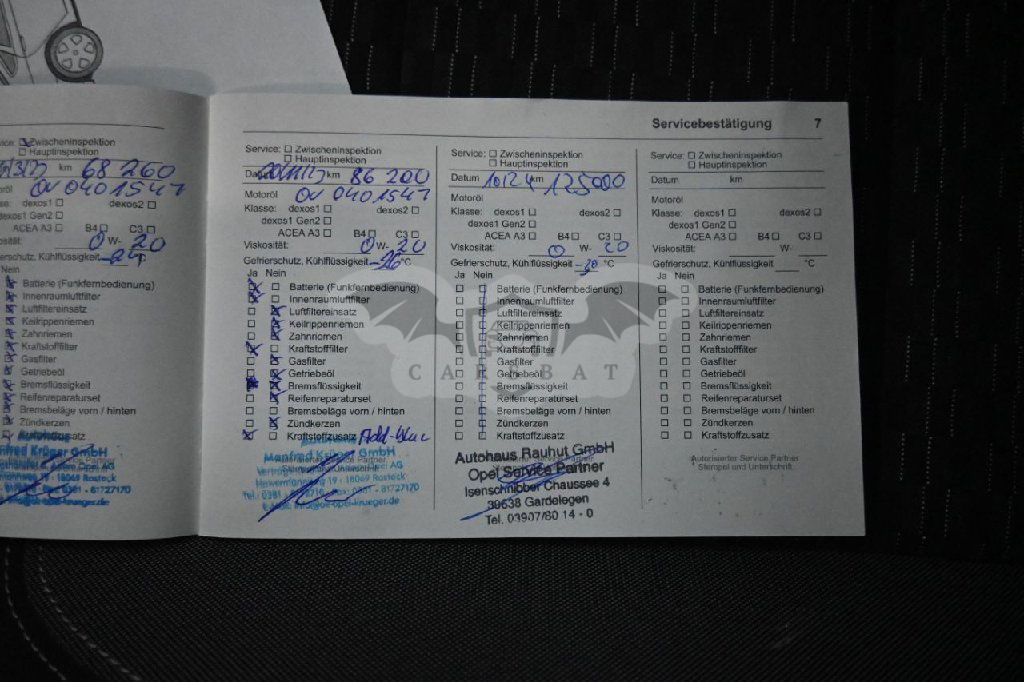 Servicebestätigung 7
Service: Zwischeninspektion
Hauptinspektion
km 68 260
OV 0401547
dexos1
dexos2
dexos1 Gen2
ACEA A3 B4 C3
0 W- 20
Gefrierschutz, Kühlflüssigkeit
Nein
Batterie (Funkfernbedienung)
Innenraumluftfilter
Luftfiltereinsatz
Keilrippenriemen
Zahnriemen
Kraftstofffilter
Gasfilter
Getriebeöl
Bremsflüssigkeit
Reifenreparaturset
Bremsbeläge vorn / hinten
Zündkerzen
Manfred Krüger GmbH
19 - 18069 Rostock
0381 - 8127170
Service: Zwischeninspektion
Hauptinspektion
Datum km 86 200
Motoröl OV 0401547
Klasse: dexos1 dexos2
dexos1 Gen2
ACEA A3 B4 C3
Viskosität: 0 W- 20
Gefrierschutz, Kühlflüssigkeit -26 °C
Ja Nein
Batterie (Funkfernbedienung)
Innenraumluftfilter
Luftfiltereinsatz
Keilrippenriemen
Zahnriemen
Kraftstofffilter
Gasfilter
Getriebeöl
Bremsflüssigkeit
Reifenreparaturset
Bremsbeläge vorn / hinten
Zündkerzen
Kraftstoffzusatz Add-blue
Autohaus
Manfred Krüger GmbH
19 - 18069 Rostock
Service: Zwischeninspektion
Hauptinspektion
Datum 10.12.24 km 125000
Motoröl
Klasse: dexos1 dexos2
dexos1 Gen2
ACEA A3 B4 C3
Viskosität: 0 W- 20
Gefrierschutz, Kühlflüssigkeit -30 °C
Ja Nein
Batterie (Funkfernbedienung)
Innenraumluftfilter
Luftfiltereinsatz
Keilrippenriemen
Zahnriemen
Kraftstofffilter
Gasfilter
Getriebeöl
Bremsflüssigkeit
Reifenreparaturset
Bremsbeläge vorn / hinten
Zündkerzen
Kraftstoffzusatz
Autohaus Rauhut GmbH
Opel Service Partner
Isenschnibber Chaussee 4
39638 Gardelegen
Tel. 03907/80 14 - 0
Service: Zwischeninspektion
Hauptinspektion
Datum km
Motoröl
Klasse: dexos1 dexos2
dexos1 Gen2
ACEA A3 B4 C3
Viskosität: W-
Gefrierschutz, Kühlflüssigkeit °C
Ja Nein
Batterie (Funkfernbedienung)
Innenraumluftfilter
Luftfiltereinsatz
Keilrippenriemen
Zahnriemen
Kraftstofffilter
Gasfilter
Getriebeöl
Bremsflüssigkeit
Reifenreparaturset
Bremsbeläge vorn / hinten
Zündkerzen
Kraftstoffzusatz
Autorisierter Service Partner
Stempel und Unterschrift
CAR BAT